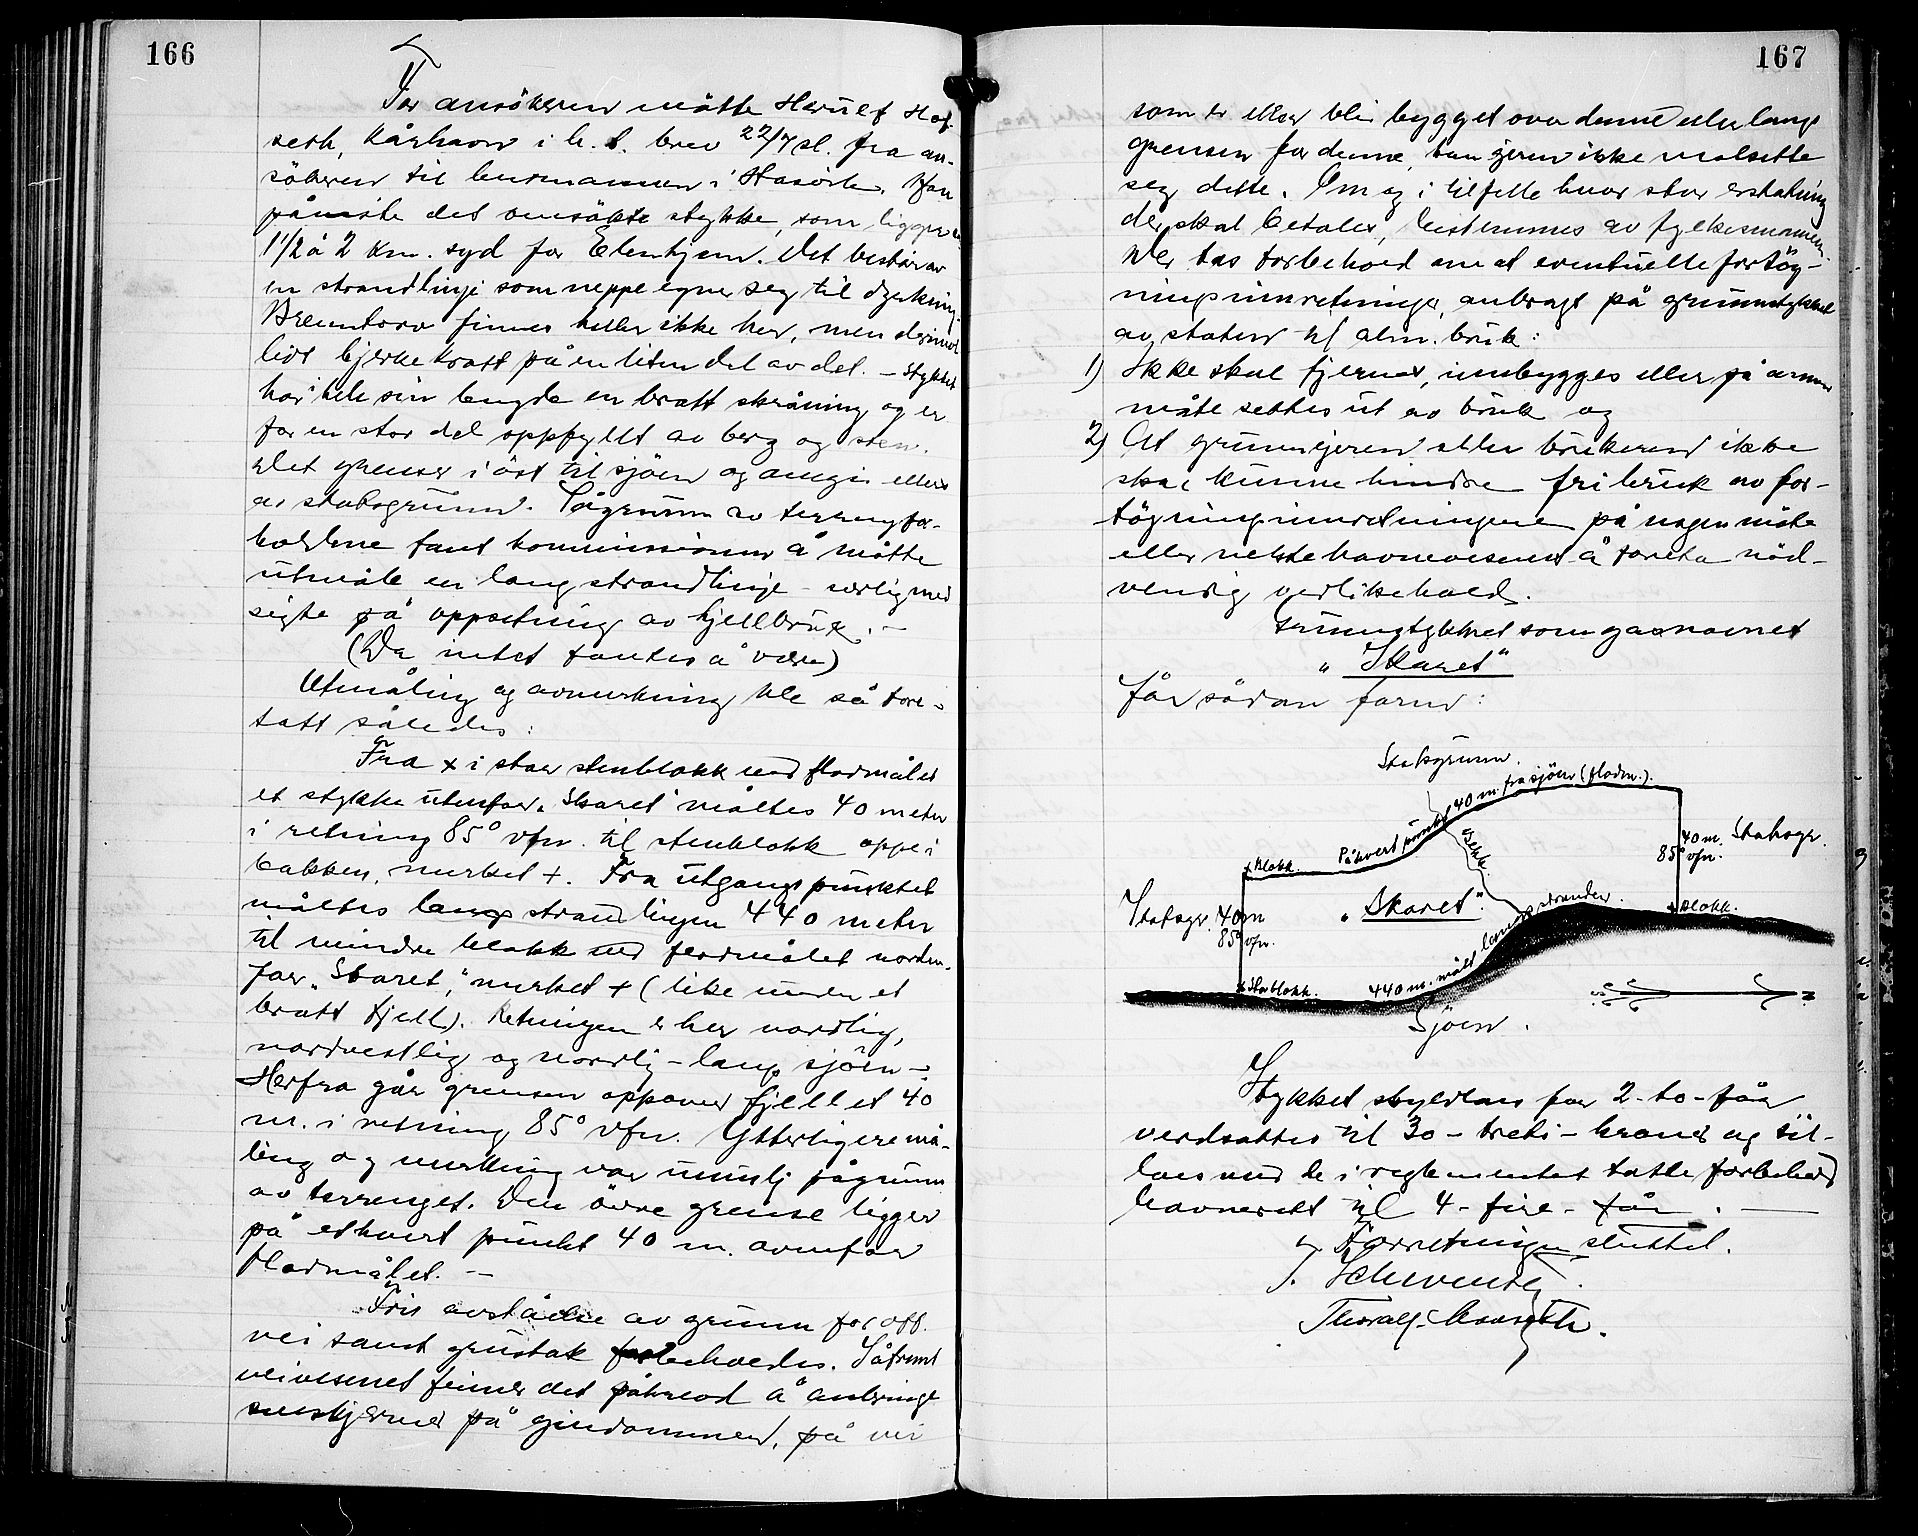 166
For ansökeren måtte Herulf Hof-
seth, Kårhavn i h. t. brev 22/7 sl. fra an-
sökeren til lensmannen i Hasvik. Han
påviste det omsökte stykke, som ligger
1 1/2 à 2 km. syd for Elenhjem. Det består av
en strandlinje som neppe egner seg til dyrkning.
Brenntorv finnes heller ikke her, men derimot
lidt bjerkekratt på en liten del av det. – Stykket
har i hele sin lengde en bratt skråning og er
for en stor del oppfyllt av berg og sten.
Det grenser i öst til sjöen og omgis ellers
av statsgrunn. På grunn av terrengfor-
holdene fant kommissionen å måtte
utmåle en lang strandlinje – særlig med
sigte på oppsetning av hjellbruk. –
(Da intet fantes å være)
Utmåling og avmerkning ble så fore-
tatt således:
Fra x i stor stenblokk ved flodmålet
et stykke utenfor „Skaret” måltes 40 meter
i retning 85° vfn. til stenblokk oppe i
bakken, merket +. Fra utgangspunktet
måltes langs strandlinjen 440 meter
til mindre blokk ved flodmålet norden-
for „Skaret”, merket + (like under et
bratt fjell). Retningen er her nordlig,
nordvestlig og nordlig – langs sjöen –.
Herfra går grensen oppover fjellet 40
m. i retning 85° vfn. Ytterligere må-
ling og merkning var umulig pågrunn
av terrenget. Den övre grense ligger
på ethvert punkt 40 m. ovenfor
flodmålet. –
Fri avståelse av grunn for off.
vei samt grustak forbeholdes. Såfremt
veivesenet finner det påkrevd å anbringe
sneskjermer på eiendommen, på vei
167
som er eller bli bygget over denne eller langs
grensen for denne, kan eieren ikke motsette
seg dette. Om og i tilfelle hvor stor erstatning
der skal betales, bestemmes av fylkesmannen.
Der tas forbehold om at eventuelle fortöy-
ningsinnretninger, anbragt på grunnstykket
av staten til alm. bruk:
1) Ikke skal fjernes, innbygges eller på annen
måte settes ut av bruk og
2) At grunneieren eller brukeren ikke
skal kunne hindre fri bruk av for-
töyningsinnretningene på nogen måte
eller nekte havnevesenet å foreta nöd-
vendig vedlikehold.
Grunnstykket som ga navnet
„Skaret”
får sådan form:
Statsgrunn.
40 m. fra sjöen (flodm.).
På hvert punkt
Bekk.
+ Blokk.
40 m.
85° vfn.
Statsgr.
Statsgr.
40 m
85° vfn.
„Skaret”.
+ Blokk.
440 m. målt langs stranden.
x Stor blokk.
Sjöen.
Stykket skyldlas for 2 - to - öre
verdsattes til 30 – tretti – kroner og til-
laes med de i reglementet tatte forbehold
havnerett til 4 - fire - får. —
Forretningen sluttet.